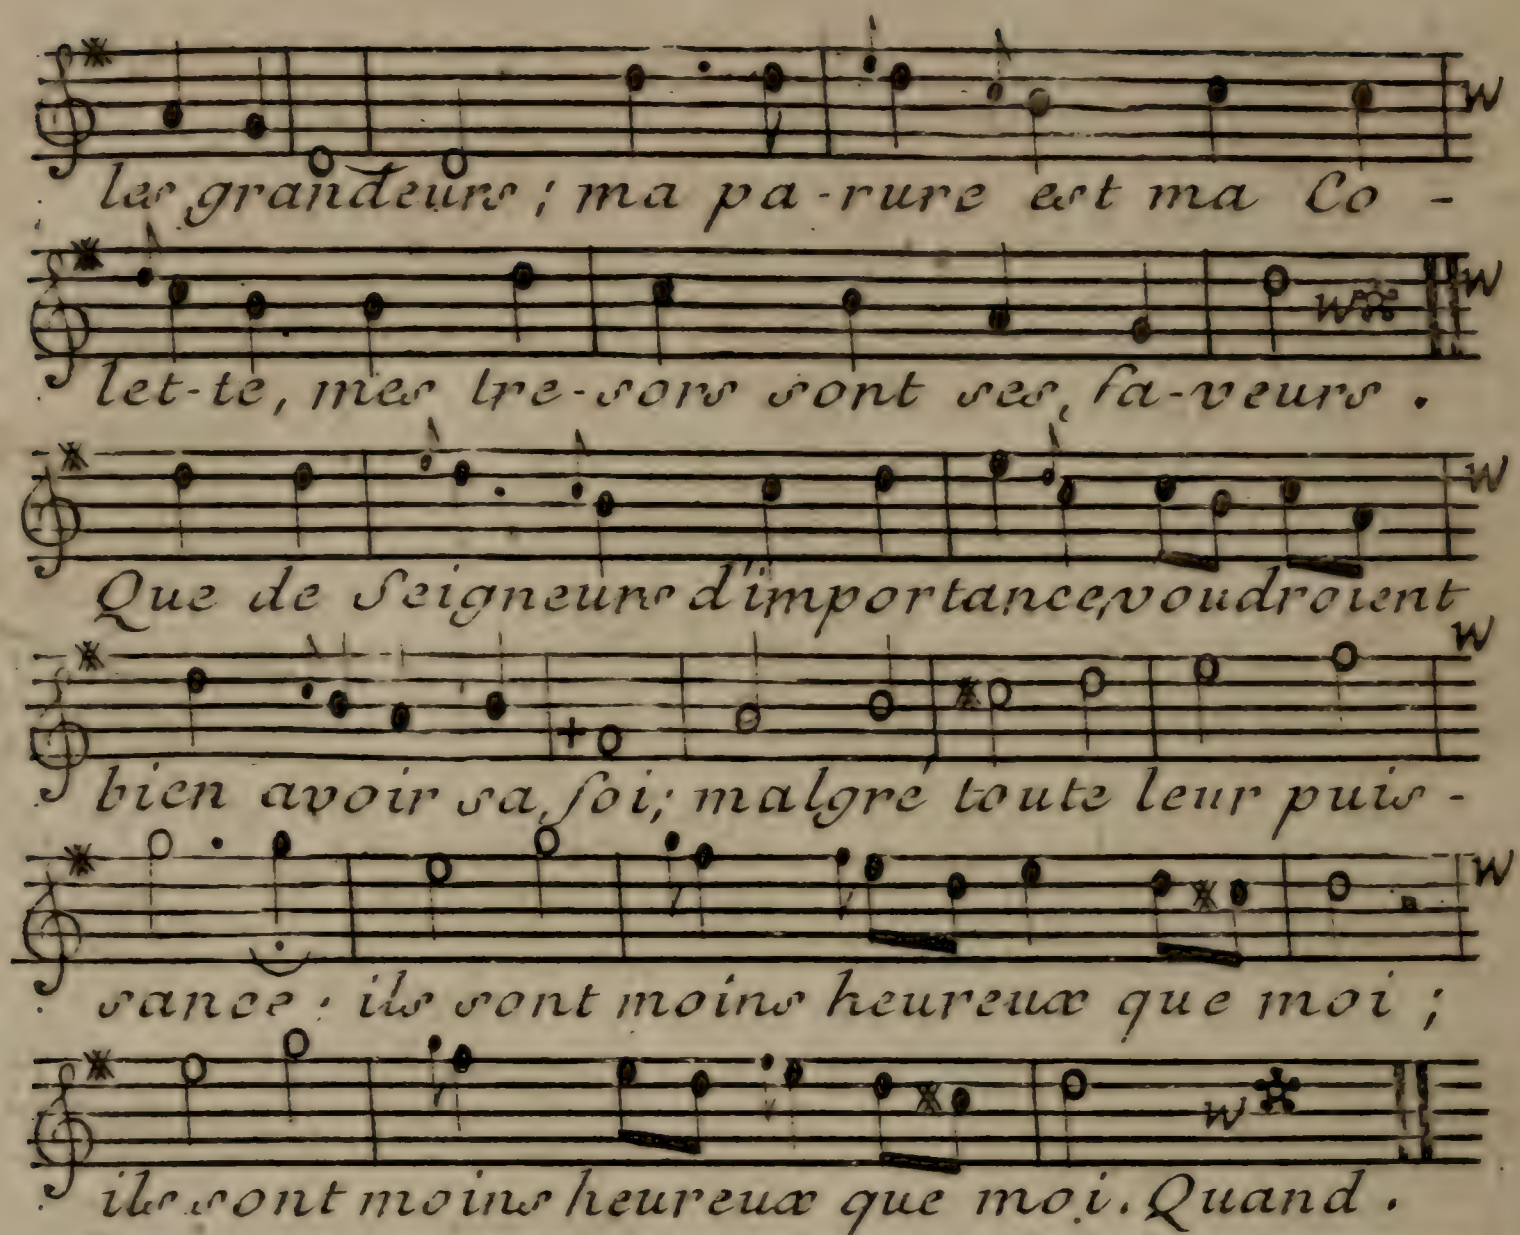 les grandeurs ; ma pa-rure est ma Co -
let-te, mes tre-sors sont ses, fa-veurs .
Que de Seigneurs d'importance, voudroient
bien avoir sa foi; malgré toute leur puis -
sance : ils sont moins heureux que moi ;
ils sont moins heureux que moi. Quand .